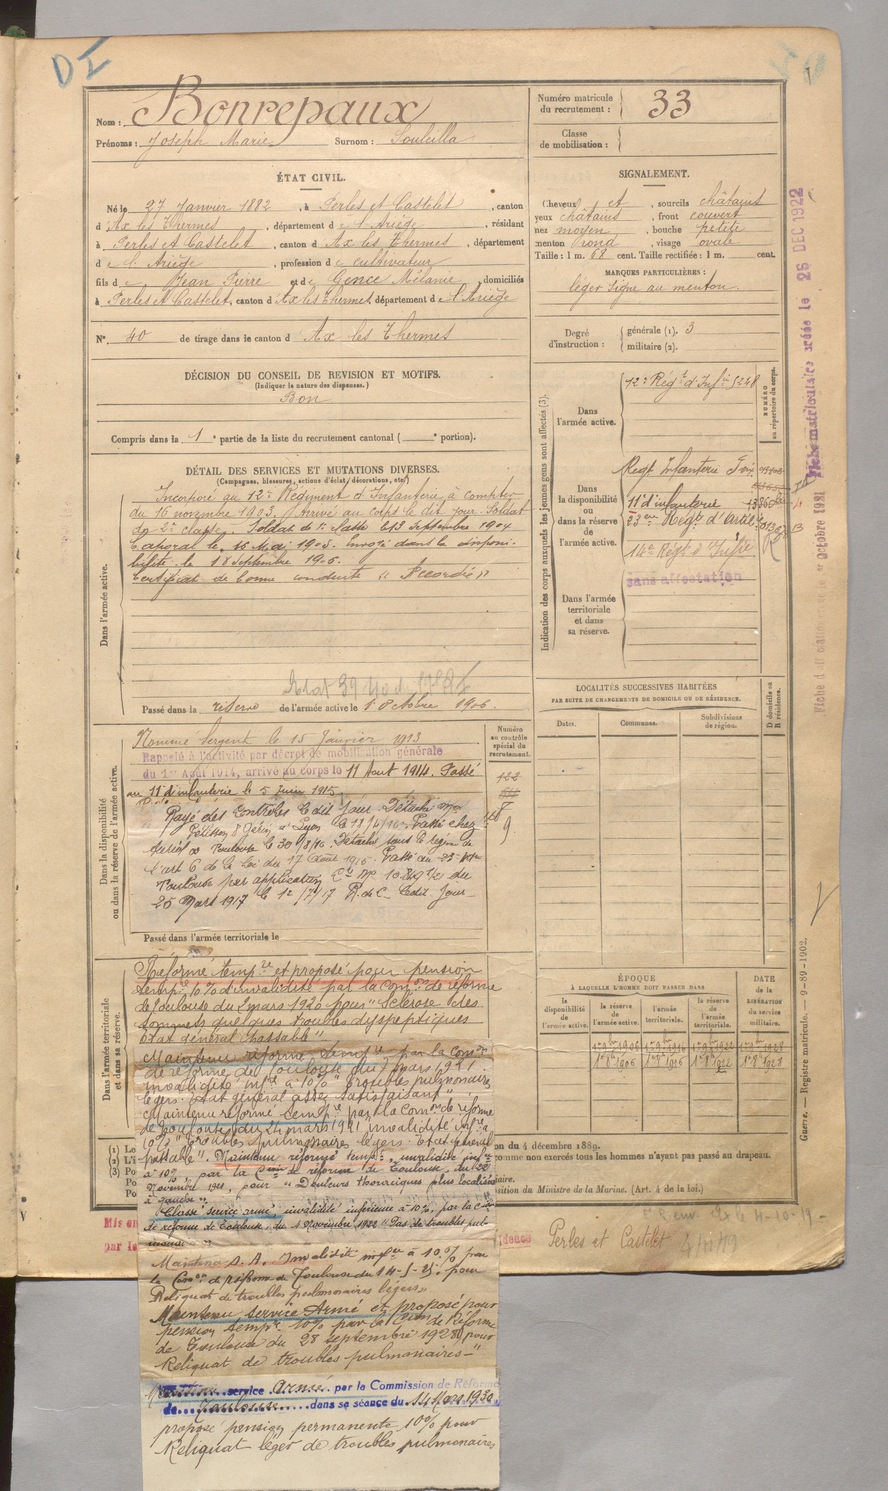 DI
Nom : Bonrepaux
Prénoms : Joseph Marie Surnom : Souleilla
Numéro matricule du recrutement : 33
Classe de mobilisation :
ÉTAT CIVIL.
Né le 27 Janvier 1882, à Perles et Castelet, canton
d'Ax les Thermes, département de l'Ariège, résidant
à Perles et Castelet, canton d'Ax les Thermes, département
de l'Ariège, profession de cultivateur
fils de Jean Pierre et de Gence Mélanie, domiciliés
à Perles et Castelet, canton d'Ax les Thermes, département de l'Ariège
N° 40 de tirage dans le canton d'Ax les Thermes
SIGNALEMENT.
Cheveux et, sourcils châtains
yeux châtains, front couvert
nez moyen, bouche petite
menton rond, visage ovale
Taille : 1 m. 68 cent. Taille rectifiée : 1 m. cent.
MARQUES PARTICULIÈRES :
léger signe au menton.
Degré d'instruction : générale (1). 3
militaire (2).
DÉCISION DU CONSEIL DE REVISION ET MOTIFS.
(Indiquer la nature des dispenses.)
Bon
Compris dans la 1e partie de la liste du recrutement cantonal ( e portion).
DÉTAIL DES SERVICES ET MUTATIONS DIVERSES.
(Campagnes, blessures, actions d'éclat, décorations, etc.)
Dans l'armée active.
Incorporé au 12e Régiment d'Infanterie à compter
du 16 novembre 1903. Arrivé au corps le dit jour. Soldat
de 2e classe. Soldat de 1e classe le 13 Septembre 1904
Caporal le 16 Mai 1905. Envoyé dans la disponi-
bilité le 18 Septembre 1906.
Certificat de bonne conduite "Accordé"
Passé dans la réserve de l'armée active le 1 8bre 1906.
Indication des corps auxquels les jeunes gens sont affectés (3).
NUMÉRO au répertoire du corps.
Dans l'armée active.
12e Régt d'Infie 5248
Dans la disponibilité ou dans la réserve de l'armée active.
Regt Infanterie Foix
11e d'infanterie
23eme Regt d'Artil
14e Régt d'Infie
sans affectation
Dans l'armée territoriale et dans sa réserve.
LOCALITÉS SUCCESSIVES HABITÉES
PAR SUITE DE CHANGEMENTS DE DOMICILE OU DE RÉSIDENCE.
Dates. Communes. Subdivisions de région.
D domicile ou R résidence.
Dans la disponibilité ou dans la réserve de l'armée active.
Numéro au contrôle spécial du recrutement.
Nommé Sergent le 15 Janvier 1913
Rappelé à l'activité par décret de mobilisation générale
du 1er Août 1914, arrivé au corps le 11 Aout 1914. Passé
au 11 d'infanterie le 5 Juin 1915.
Rayé des contrôles le dit jour. Détaché
à Lyon le 13/4/16. Passé chez
Toulouse le 30/8/16. Détaché sous le régime de
l'art 6 de la loi du 17 Août 1915. Passé au 23e
Toulouse par application
25 Mars 1917 le 1e/7/17 R. d. C. le dit jour
Passé dans l'armée territoriale le
Dans l'armée territoriale et dans sa réserve.
Réformé tempre et proposé pour pension
tempre 10% d'invalidité par la Comon de réforme
de Toulouse du 2 mars 1920 pour "Sclérose des
sommets quelques troubles dyspeptiques
Etat général passable"
Maintenu réformé tempre par la Comon
de réforme de Toulouse du 7 mars 1921
invalidité infre à 10% "troubles pulmonaires
légers. Etat général assez satisfaisant"
Maintenu réformé tempre par la Comon de réforme
de Toulouse du 24 mars 1921 invalidité infre à
10% "Troubles pulmonaires légers. Etat général
passable". Maintenu réformé tempre, invalidité infre
à 10% par la Comon de réforme de Toulouse, du 22
Novembre 1921, pour "Douleurs thoraciques plus localisées
à gauche"
Classé service armé invalidité inférieure à 10% par la Con
de réforme de Toulouse du 1 Novembre 1922 "Pas de troubles pul-
monaires"
Maintenu S. A. Invalidité infre à 10% par
la Comon de réforme de Toulouse du 14-5-25 pour
Reliquat de troubles pulmonaires légers
Maintenu service Armé et proposé pour
pension tempre 10% par la Con de Réforme
de Toulouse du 28 septembre 1928 pour
Reliquat de troubles pulmonaires"
service Armé par la Commission de Réforme
de Toulouse dans sa séance du 14 Mars 1930
propose pension permanente 10% pour
Reliquat léger de troubles pulmonaires
ÉPOQUE
À LAQUELLE L'HOMME DOIT PASSER DANS
la disponibilité de l'armée active. la réserve de l'armée active. l'armée territoriale. la réserve de l'armée territoriale.
DATE de la LIBÉRATION du service militaire.
1er 8bre 1906 1er 8bre 1916 1er 8bre 1922 1er 8bre 1928
on du 4 décembre 1889.
comme non exercés tous les hommes n'ayant pas passé au drapeau.
sition du Ministre de la Marine. (Art. 4 de la loi.)
Mis en
par le
Perles et Castelet
Guerre. — Registre matricule. — 9-89-1902.
Fiche matriculaire créée le 26 DEC 1922